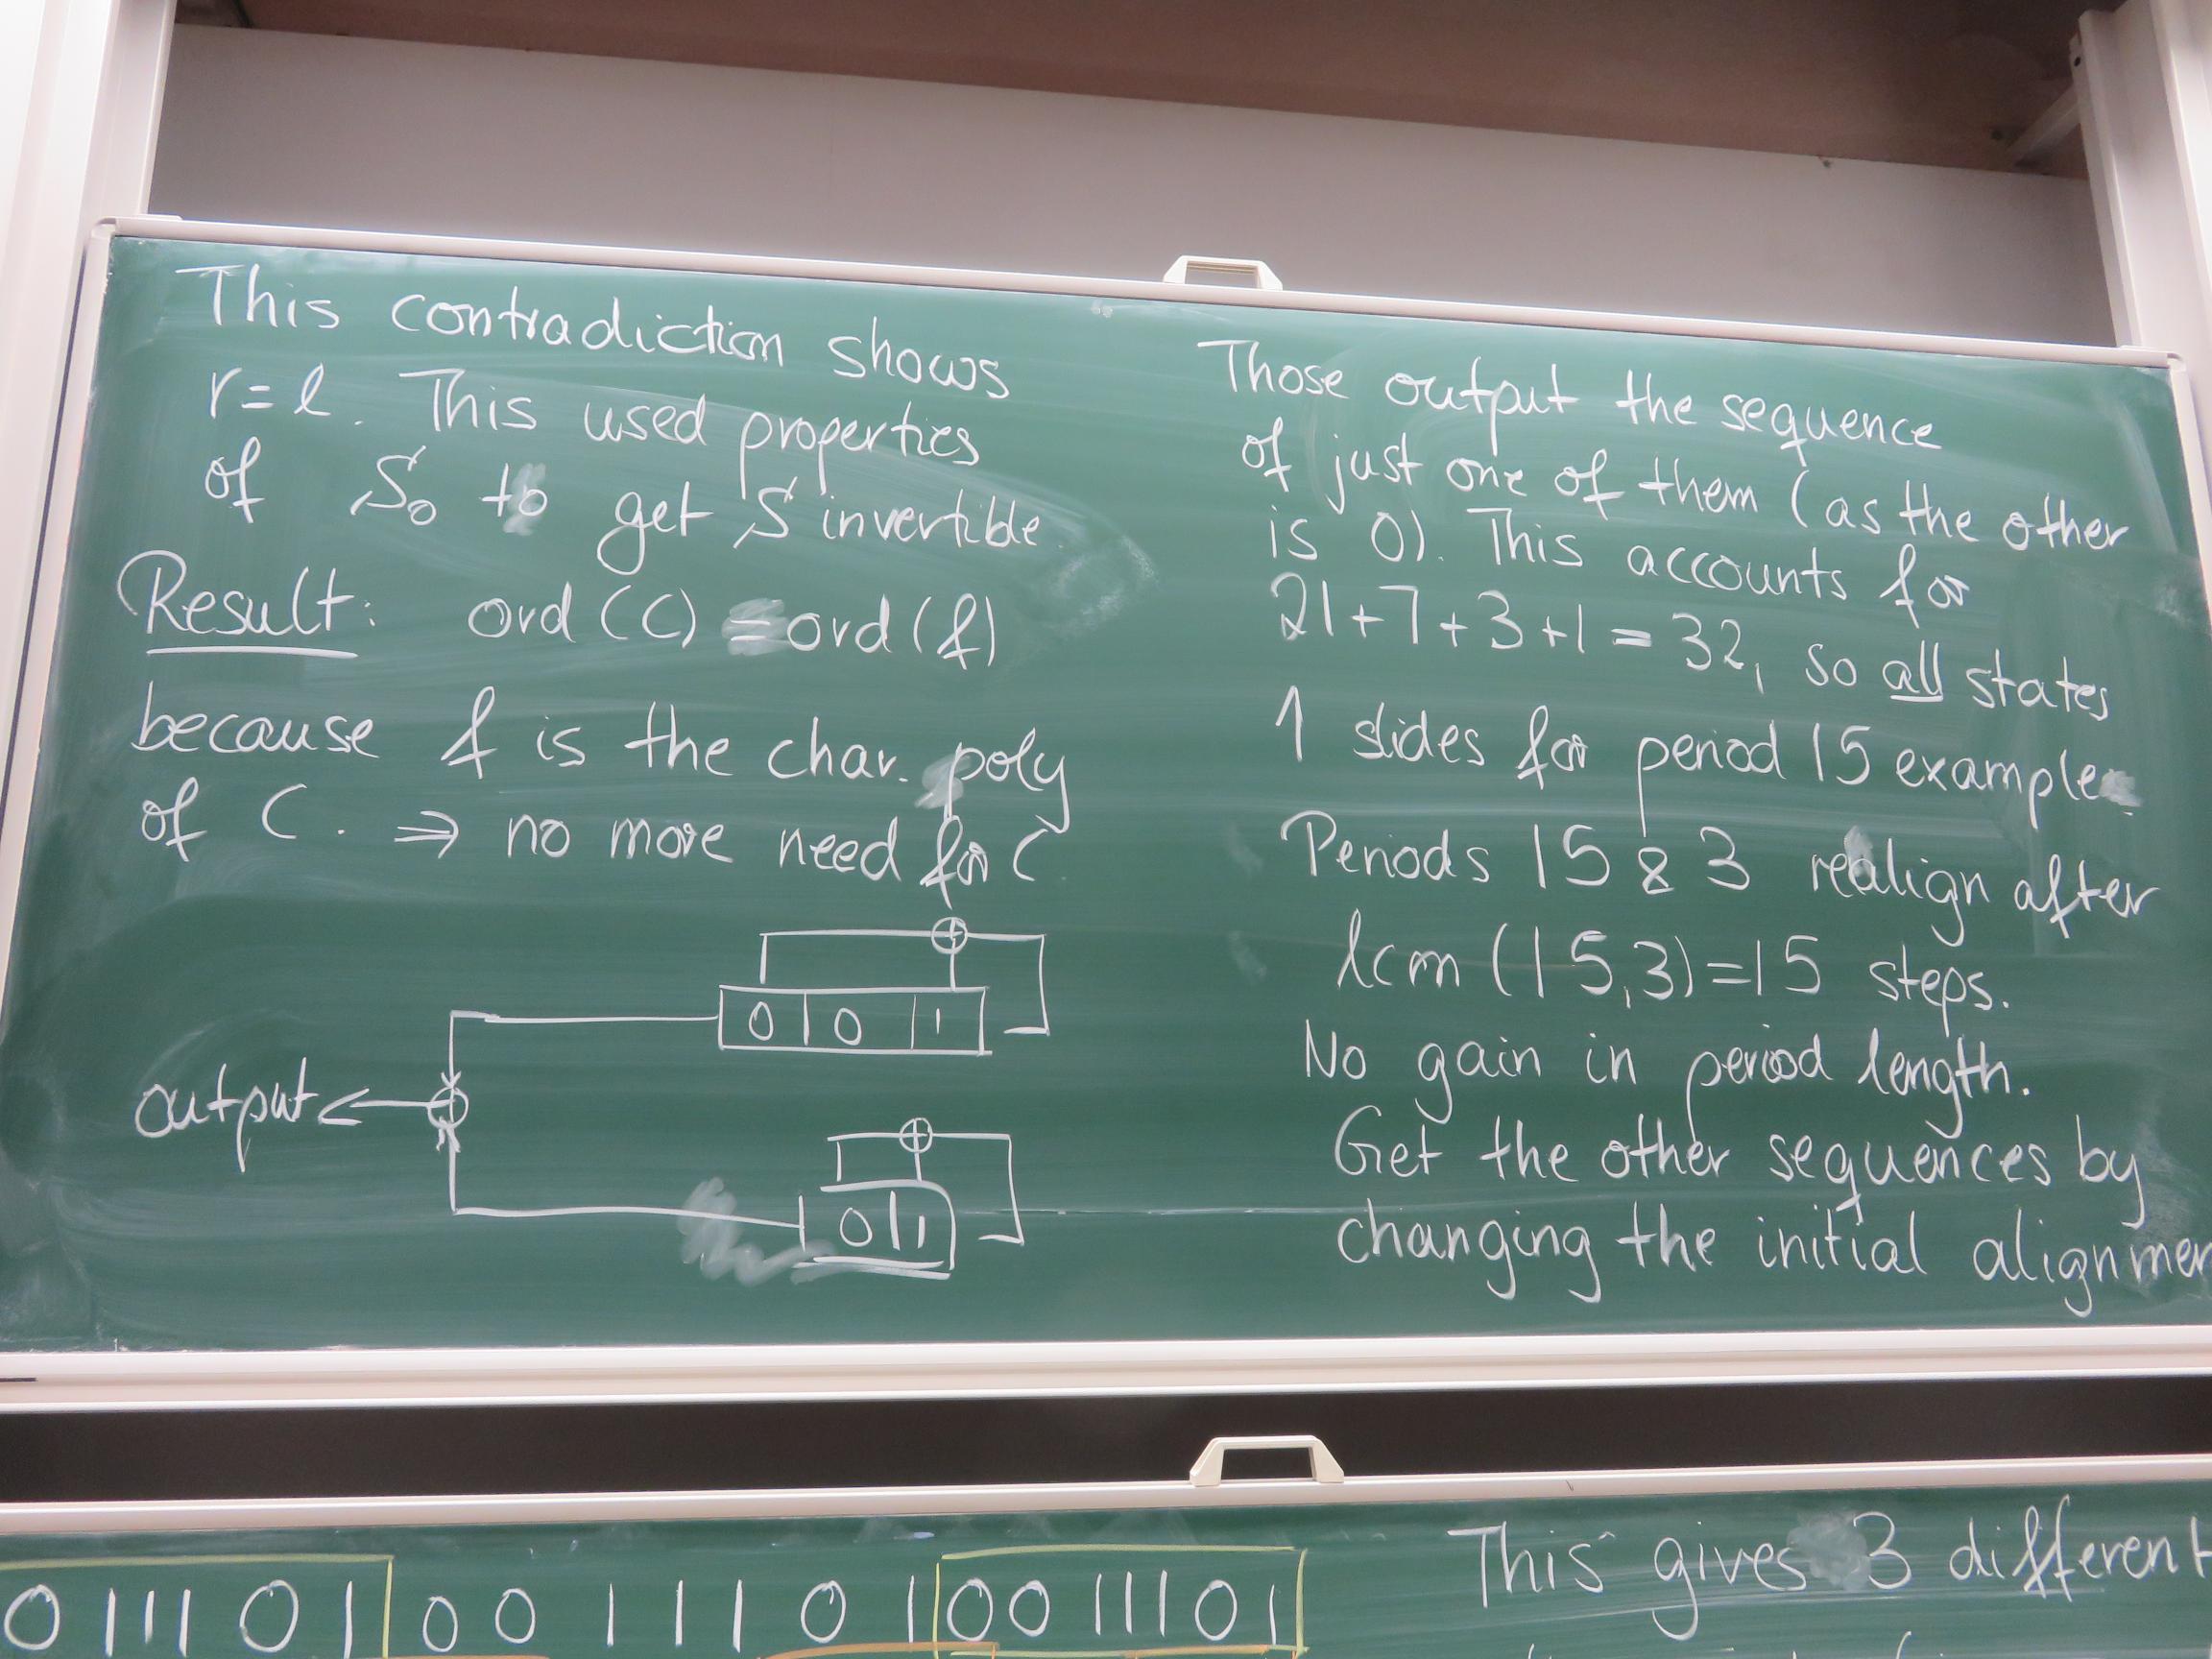 This contradiction shows
r=l. This used properties
of S₀ to get S invertible.
Result: ord(C)=ord(f)
because f is the char. poly
of C. ⇒ no more need for C
⊕
0 0 1
output ← ⊕
⊕
0 1 1
Those output the sequence
of just one of them (as the other
is 0). This accounts for
21+7+3+1=32, so all states
↑ slides for period 15 example
Periods 15 & 3 realign after
lcm(15,3)=15 steps.
No gain in period length.
Get the other sequences by
changing the initial alignmen
0 1 1 1 0 1 0 0 1 1 1 0 1 0 0 1 1 1 0 1
This gives 3 different